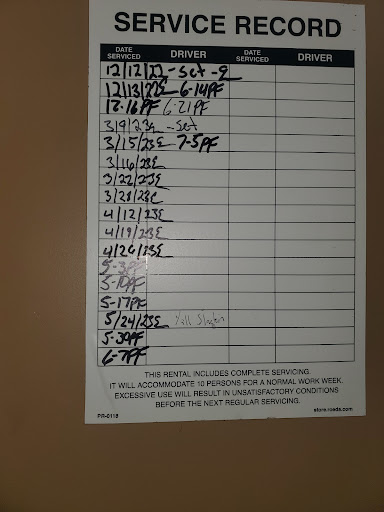 SERVICE RECORD
DATE SERVICED DRIVER DATE SERVICED DRIVER
12/12/22 - Set - 9
12/13/22E 6-14PF
12-16PF 6-21PF
3/9/23 - Set
3/15/23E 7-5PF
3/16/23E
3/22/23E
3/28/23E
4/12/23E
4/19/23E
4/26/23E
5-3PF
5-10PF
5-17PF
5/24/23E
5-30PF
6-7PF
THIS RENTAL INCLUDES COMPLETE SERVICING.
IT WILL ACCOMMODATE 10 PERSONS FOR A NORMAL WORK WEEK.
EXCESSIVE USE WILL RESULT IN UNSATISFACTORY CONDITIONS
BEFORE THE NEXT REGULAR SERVICING.
PR-0118 store.roeda.com